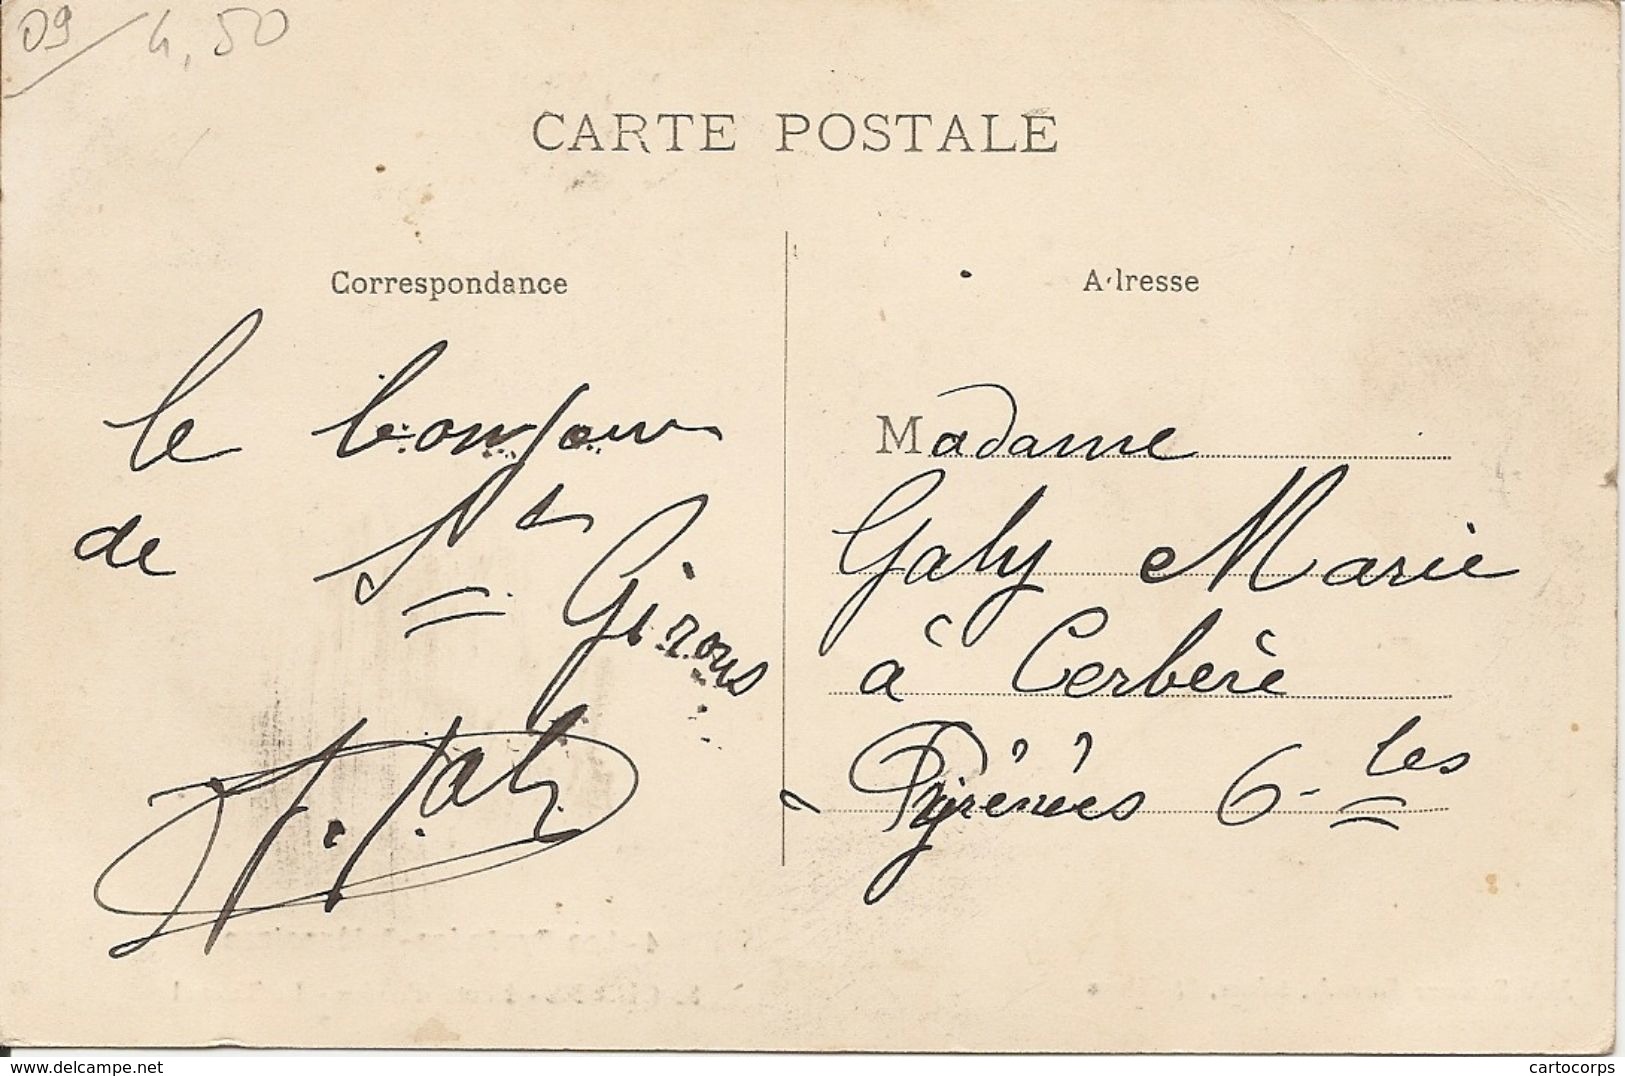 09 / 4,50
CARTE POSTALE
Correspondance
le bonjour
de St Girons
Adresse
Madame
Galy Marie
à Cerbère
Pyrénées O-les
www.delcampe.net
cartocorps